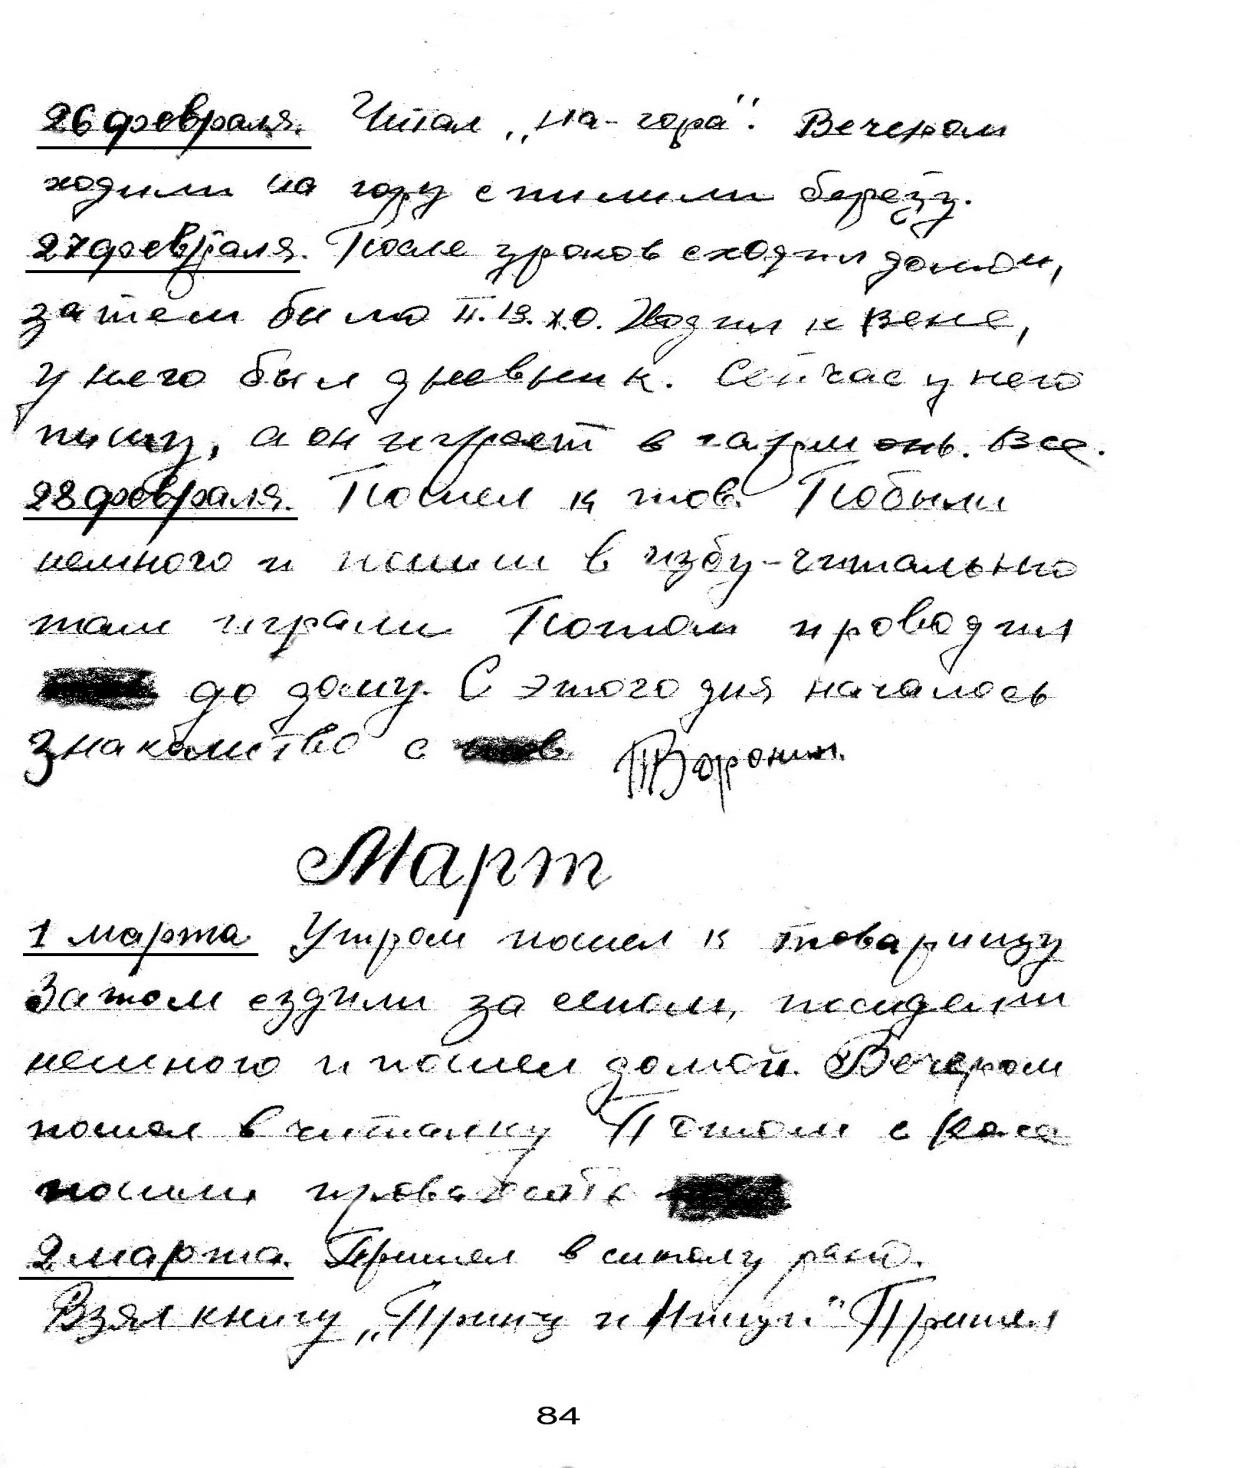 26 февраля. Читал „на-гора“. Вечером
ходили на гору спилили берёзу.
27 февраля. После уроков сходил домой,
затем было Ходил к Вене,
у него был дневник. Сейчас у него
пишу, а он играет в гармонь. Все.
28 февраля. Пошел к тов. Побыли
немного и пошли в избу-читально
там играли Потом проводил
до дому. С этого дня началось
знакомство с Воронин.
Март
1 марта Утром пошел к товарищу
Затом ездили за сеном, посидели
немного и пошел домой. Вечером
пошел в читалку Потом с
пошли провожать
2 марта. Пришел в школу рано.
Взял книгу „Принц и Нищи“ Пришел
84